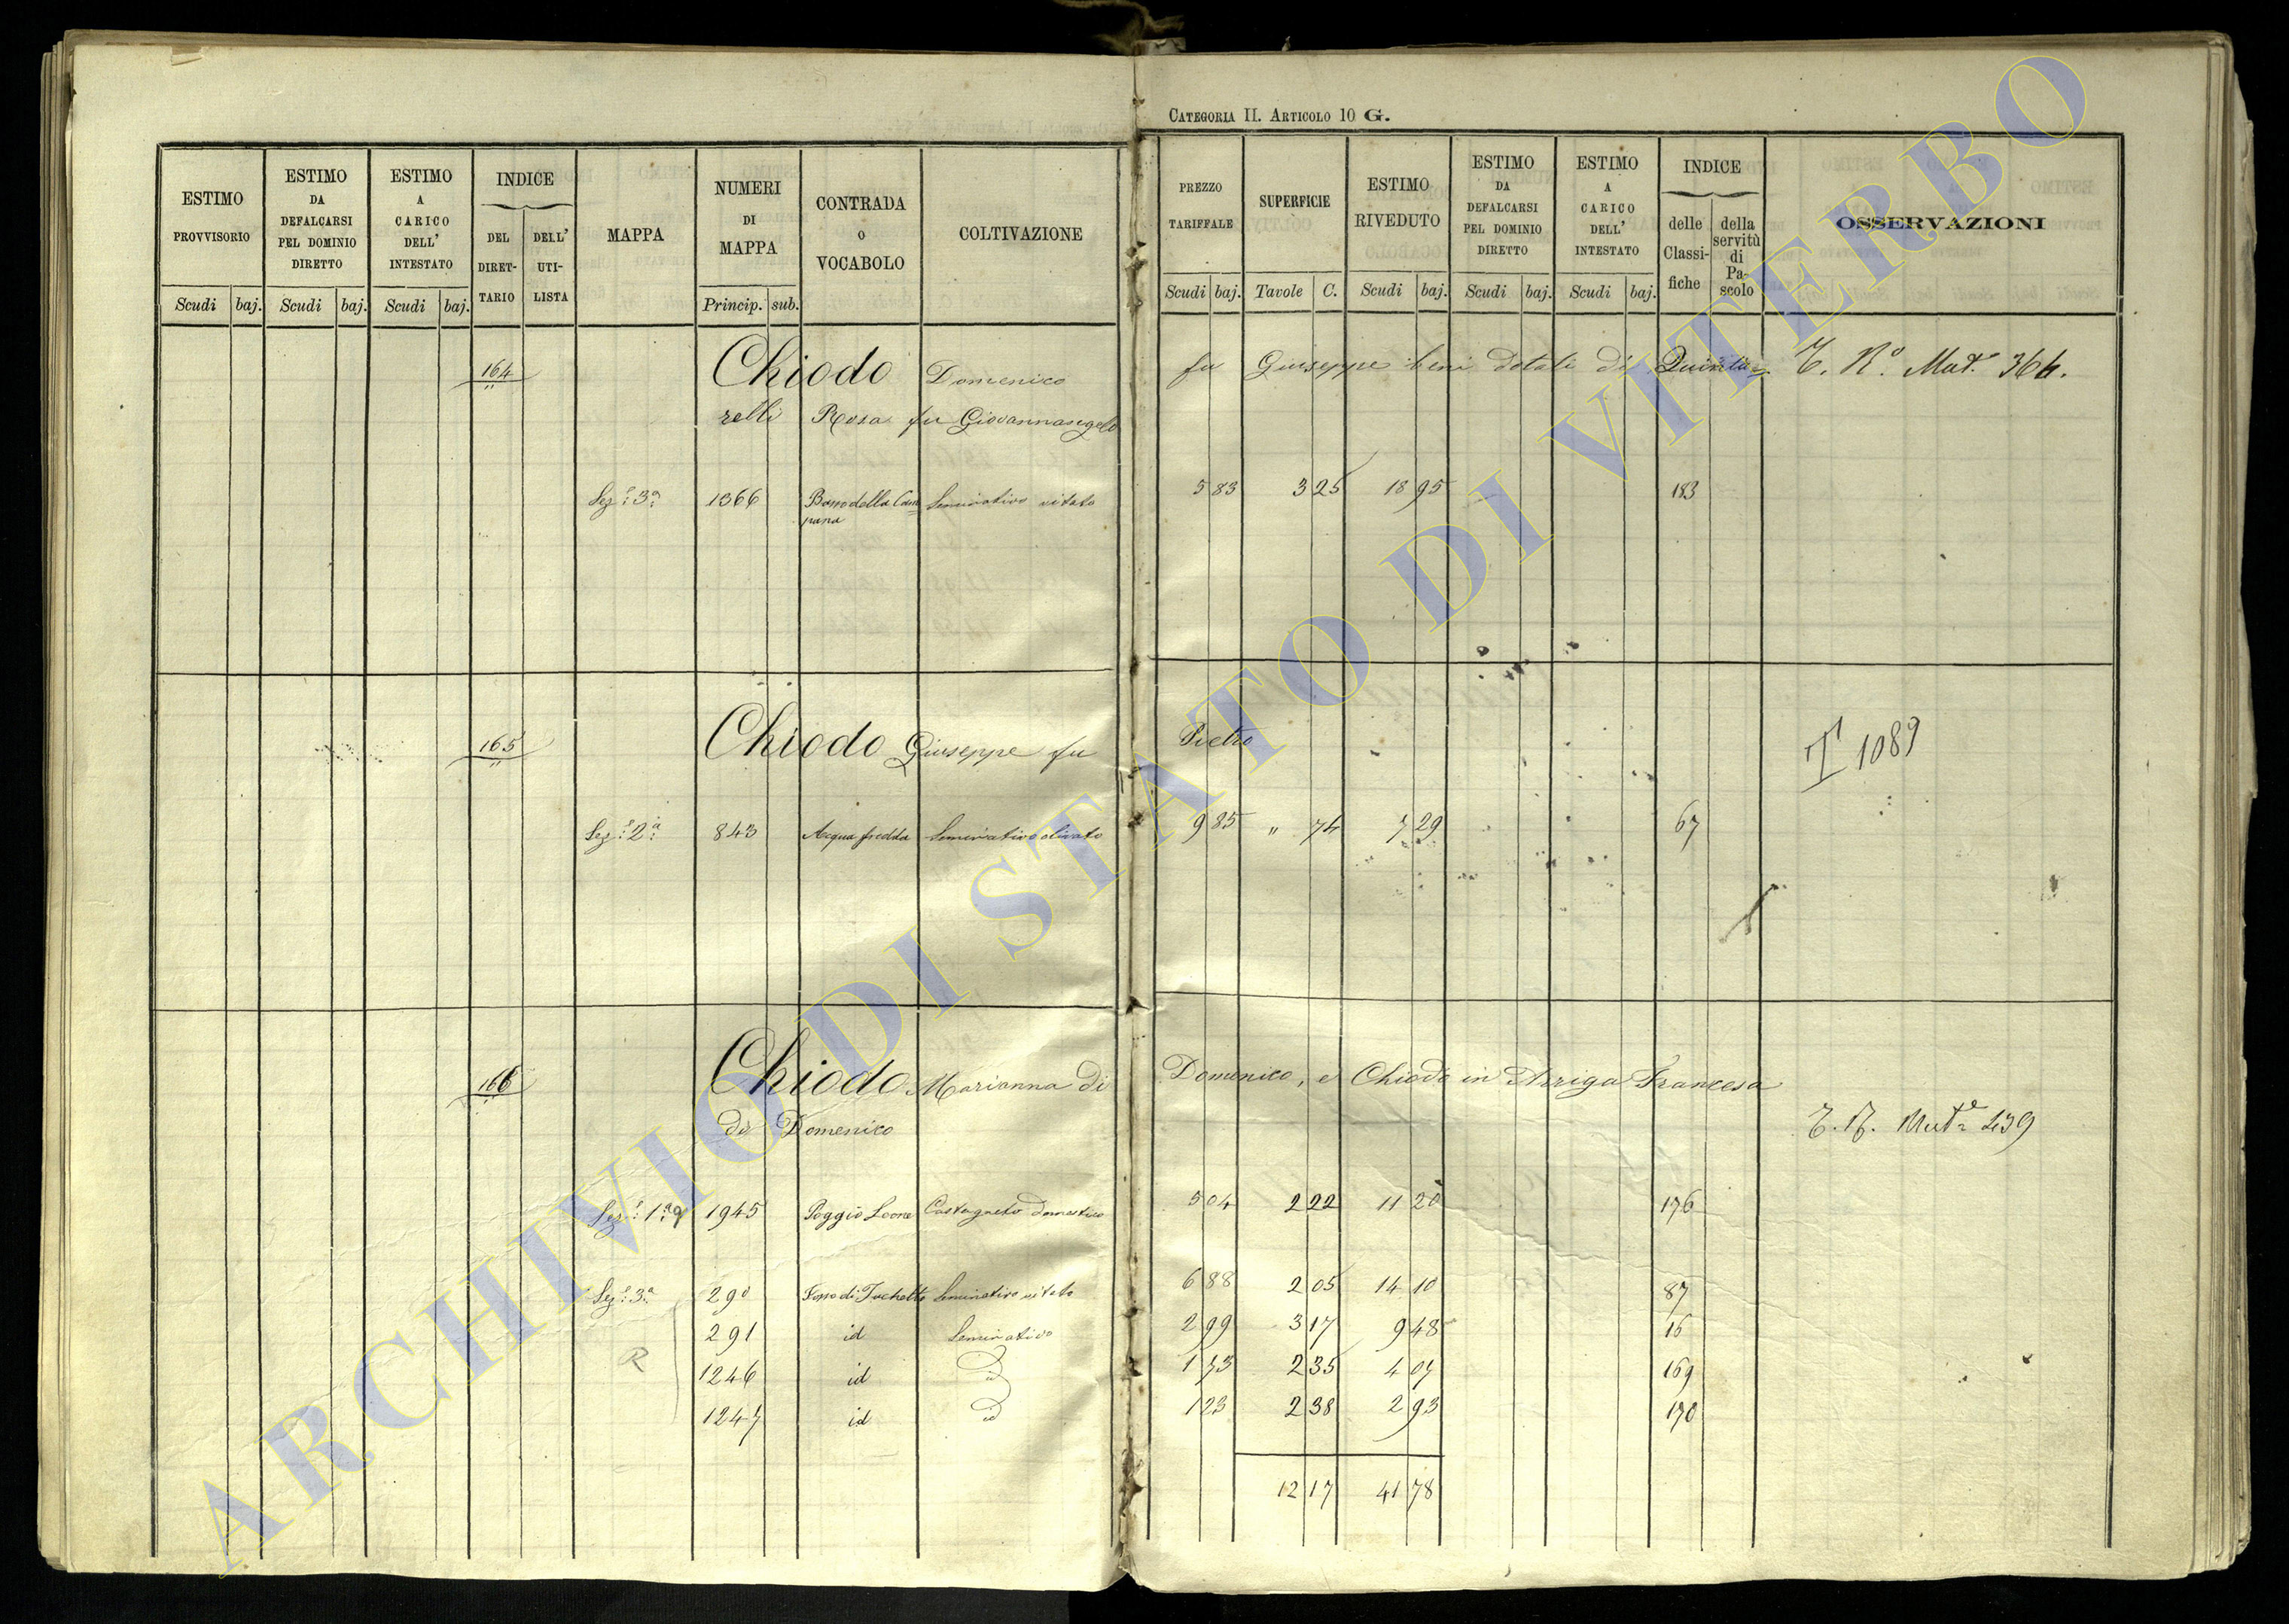 CATEGORIA II. ARTICOLO 10 G.
ESTIMO PROVVISORIO Scudi baj.
ESTIMO DA DEFALCARSI PEL DOMINIO DIRETTO Scudi baj.
ESTIMO A CARICO DELL' INTESTATO Scudi baj.
INDICE DEL DIRET-TARIO DELL' UTI-LISTA
MAPPA
NUMERI DI MAPPA Princip. sub.
CONTRADA O VOCABOLO
COLTIVAZIONE
PREZZO TARIFFALE Scudi baj.
SUPERFICIE Tavole C.
ESTIMO RIVEDUTO Scudi baj.
ESTIMO DA DEFALCARSI PEL DOMINIO DIRETTO Scudi baj.
ESTIMO A CARICO DELL' INTESTATO Scudi baj.
INDICE delle Classi-fiche della servitù di Pa-scolo
OSSERVAZIONI
164 Chiodo Domenico fu Giuseppe beni dotali di Quinta= T. N.° Mut.e 364.
relli Rosa fu Giovannangelo
Sez.e 3.a 1366 Basso della Cam= Seminativo vitato 5 83 3 25 18 95 183
pana
165 Chiodo Giuseppe fu Pietro T 1089
Sez.e 2.a 843 Acqua fredda Seminativo olivato 9 85 " 74 7 29 67
166 Chiodo Marianna di Domenico, e Chiodo in Arriga Francesa
di Domenico T. N. Mut.e 439
Sez.e 1.a 1945 Poggio Leone Castagneto domestico 5 04 2 22 11 20 176
Sez.e 3.a 290 Fosso di Fochetto Seminativo vitato 6 88 2 05 14 10 87
291 id Seminativo 2 99 3 17 9 48 16
R 1246 id id 1 73 2 35 4 07 169
1247 id id 1 23 2 38 2 93 170
12 17 41 78
ARCHIVIO DI STATO DI VITERBO